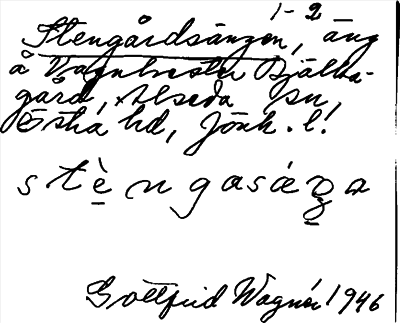 1-2
Stengårdsängen, äng
å Vagnhester Bjälka-
gård, Alseda sn,
Östra hd, Jönk. l.
stèngasáŋa
Gottfrid Wagnér 1946